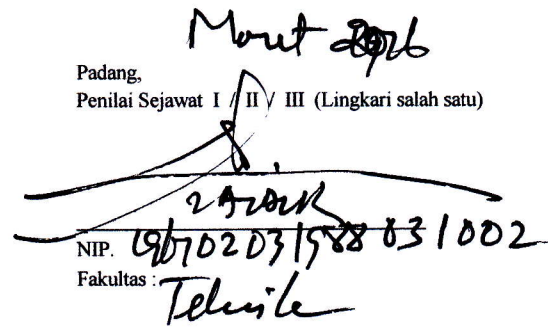 Maret 2016
Padang,
Penilai Sejawat I / II / III (Lingkari salah satu)
NIP. 196702031988031002
Fakultas : Teknik